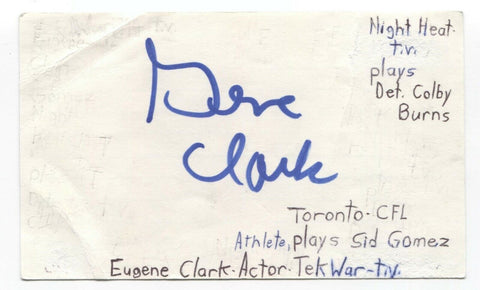 Night Heat.
t.v.
plays
Det. Colby
Burns
Gene
Clark
Toronto. CFL
Athlete, plays Sid Gomez
Eugene Clark. Actor. TekWar-t.v.